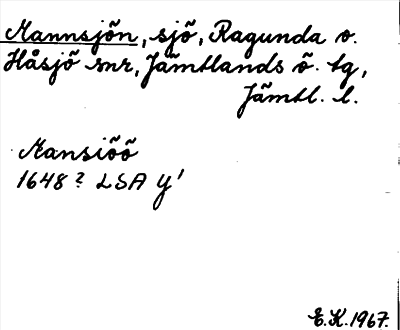 Mannsjön, sjö, Ragunda o.
Håsjö snr, Jämtlands ö. tg,
Jämtl. l.
Mansiöö
1648? LSA Y'
E.K. 1967.